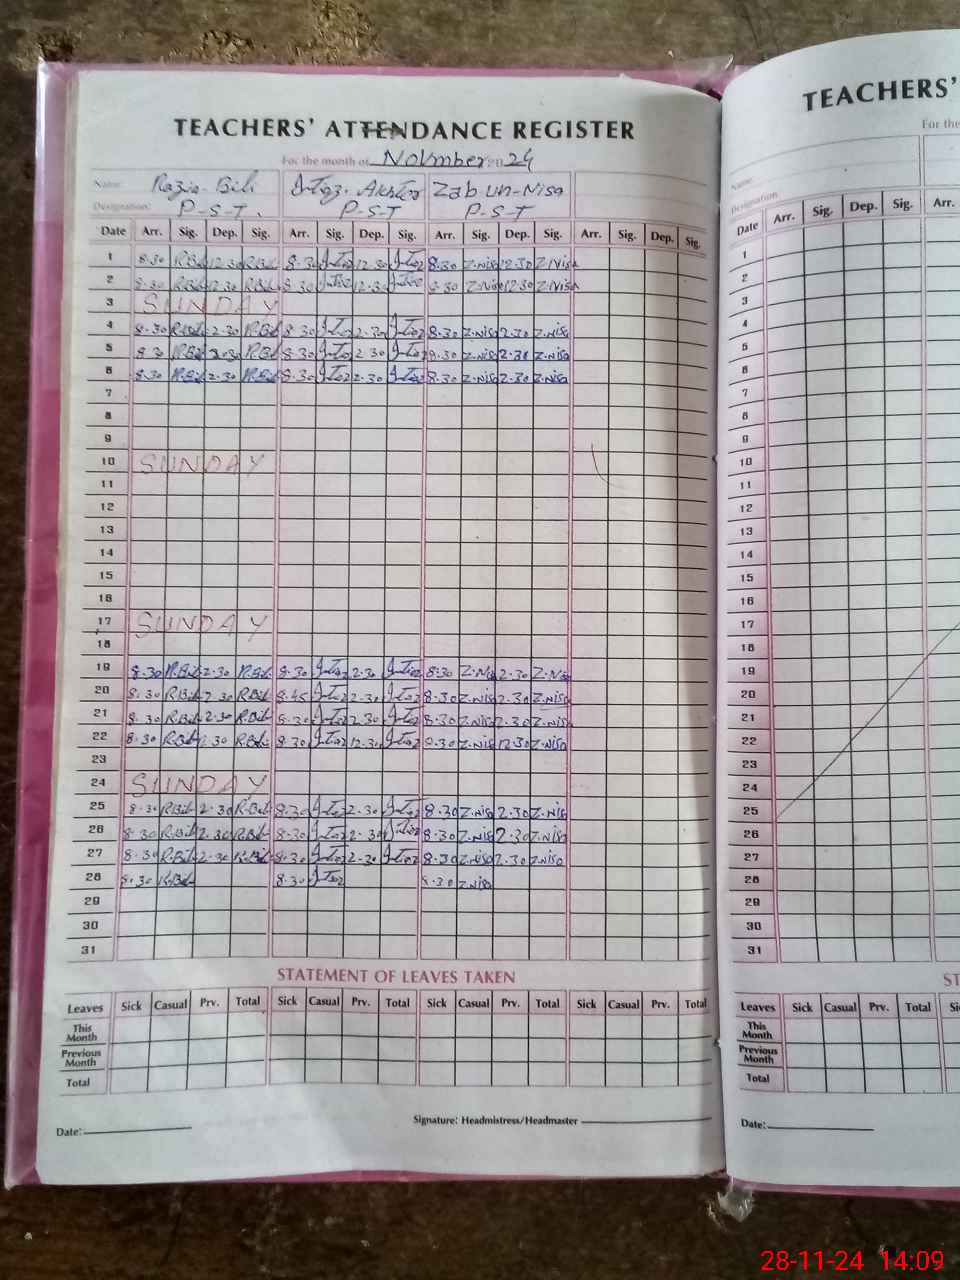 TEACHERS' ATTENDANCE REGISTER
For the month of November 20 24
Name: Razia Bibi Zab un-Nisa
Designation: P-S-T. P-S-T P-S-T
Date Arr. Sig. Dep. Sig. Arr. Sig. Dep. Sig. Arr. Sig. Dep. Sig. Arr. Sig. Dep. Sig.
1 8.30 R.Bib 12.30 R.Bib 8.30 12.30 8.30 Z.nisa 12.30 Z.Nisa
2 8.30 R.Bib 12.30 R.Bib 8.30 12.30 8.30 Z.Nisa 12.30 Z.Nisa
3 SUNDAY
4 8.30 R.Bib 2.30 R.Bib 8.30 2.30 8.30 Z.nisa 2.30 Z.nisa
5 8.30 R.Bib 2.30 R.Bib 8.30 2.30 8.30 Z.nisa 2.30 Z.nisa
6 8.30 R.Bib 2.30 R.Bib 8.30 2.30 8.30 Z.nisa 2.30 Z.nisa
7
8
9
10 SUNDAY
11
12
13
14
15
16
17 SUNDAY
18
19 8.30 R.Bib 2.30 R.Bib 8.30 2.30 8.30 Z.Nisa 2.30 Z.Nisa
20 8.30 R.Bib 2.30 R.Bib 8.45 2.30 8.30 Z.nisa 2.30 Z.nisa
21 8.30 R.Bib 2.30 R.Bib 8.30 2.30 8.30 Z.nisa 2.30 Z.nisa
22 8.30 R.Bib 12.30 R.Bib 8.30 12.30 8.30 Z.nisa 12.30 Z.nisa
23
24 SUNDAY
25 8.30 R.Bib 2.30 R.Bib 8.30 2.30 8.30 Z.nisa 2.30 Z.nisa
26 8.30 R.Bib 2.30 R.Bib 8.30 2.30 8.30 Z.nisa 2.30 Z.nisa
27 8.30 R.Bib 2.30 R.Bib 8.30 2.30 8.30 Z.nisa 2.30 Z.nisa
28 8.30 R.Bib 8.30 8.30 Z.nisa
29
30
31
STATEMENT OF LEAVES TAKEN
Leaves Sick Casual Prv. Total Sick Casual Prv. Total Sick Casual Prv. Total Sick Casual Prv. Total
This Month
Previous Month
Total
Signature: Headmistress/Headmaster
Date:
TEACHERS'
For the
Name:
Designation
Date Arr. Sig. Dep. Sig. Arr.
1
2
3
4
5
6
7
8
9
10
11
12
13
14
15
16
17
18
19
20
21
22
23
24
25
26
27
28
29
30
31
ST
Leaves Sick Casual Prv. Total
This Month
Previous Month
Total
Date:
28-11-24 14:09